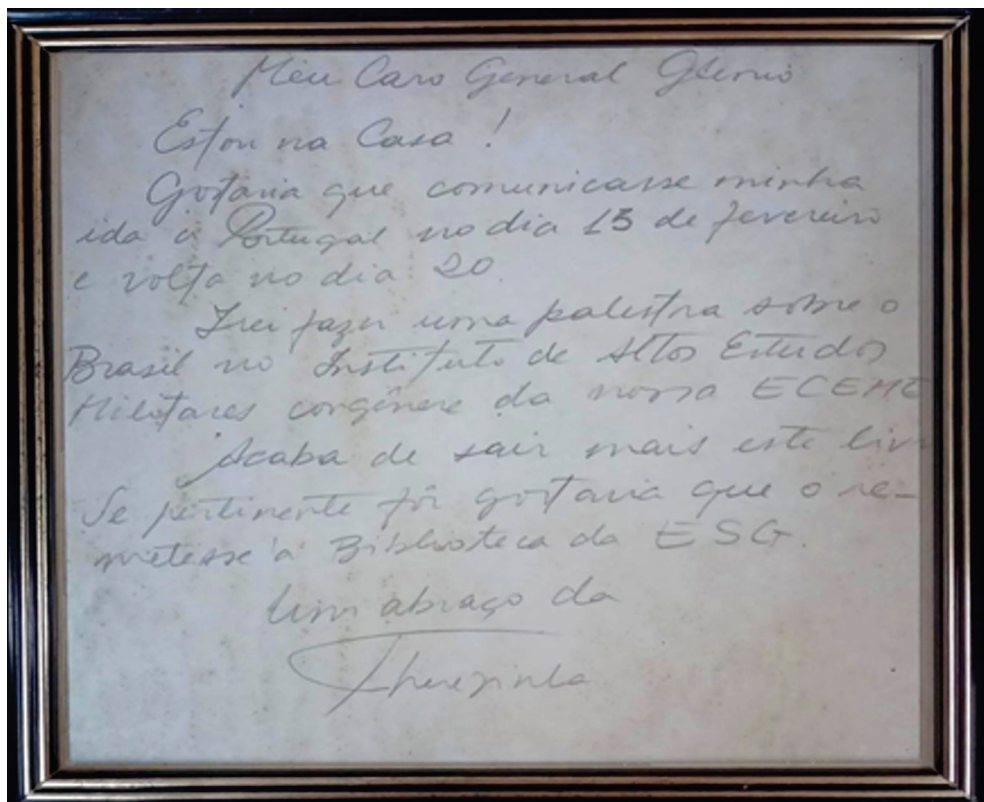 Meu Caro General Glenio
Estou na Casa !
Gostaria que comunicasse minha
ida a Portugal no dia 13 de fevereiro
e volta no dia 20.
Irei fazer uma palestra sobre o
Brasil no Instituto de Altos Estudos
Militares congênere da nossa ECEME
Acaba de sair mais este liv
Se pertinente fôr gostaria que o re-
metesse à Biblioteca da ESG.
Um abraço da
Therezinha